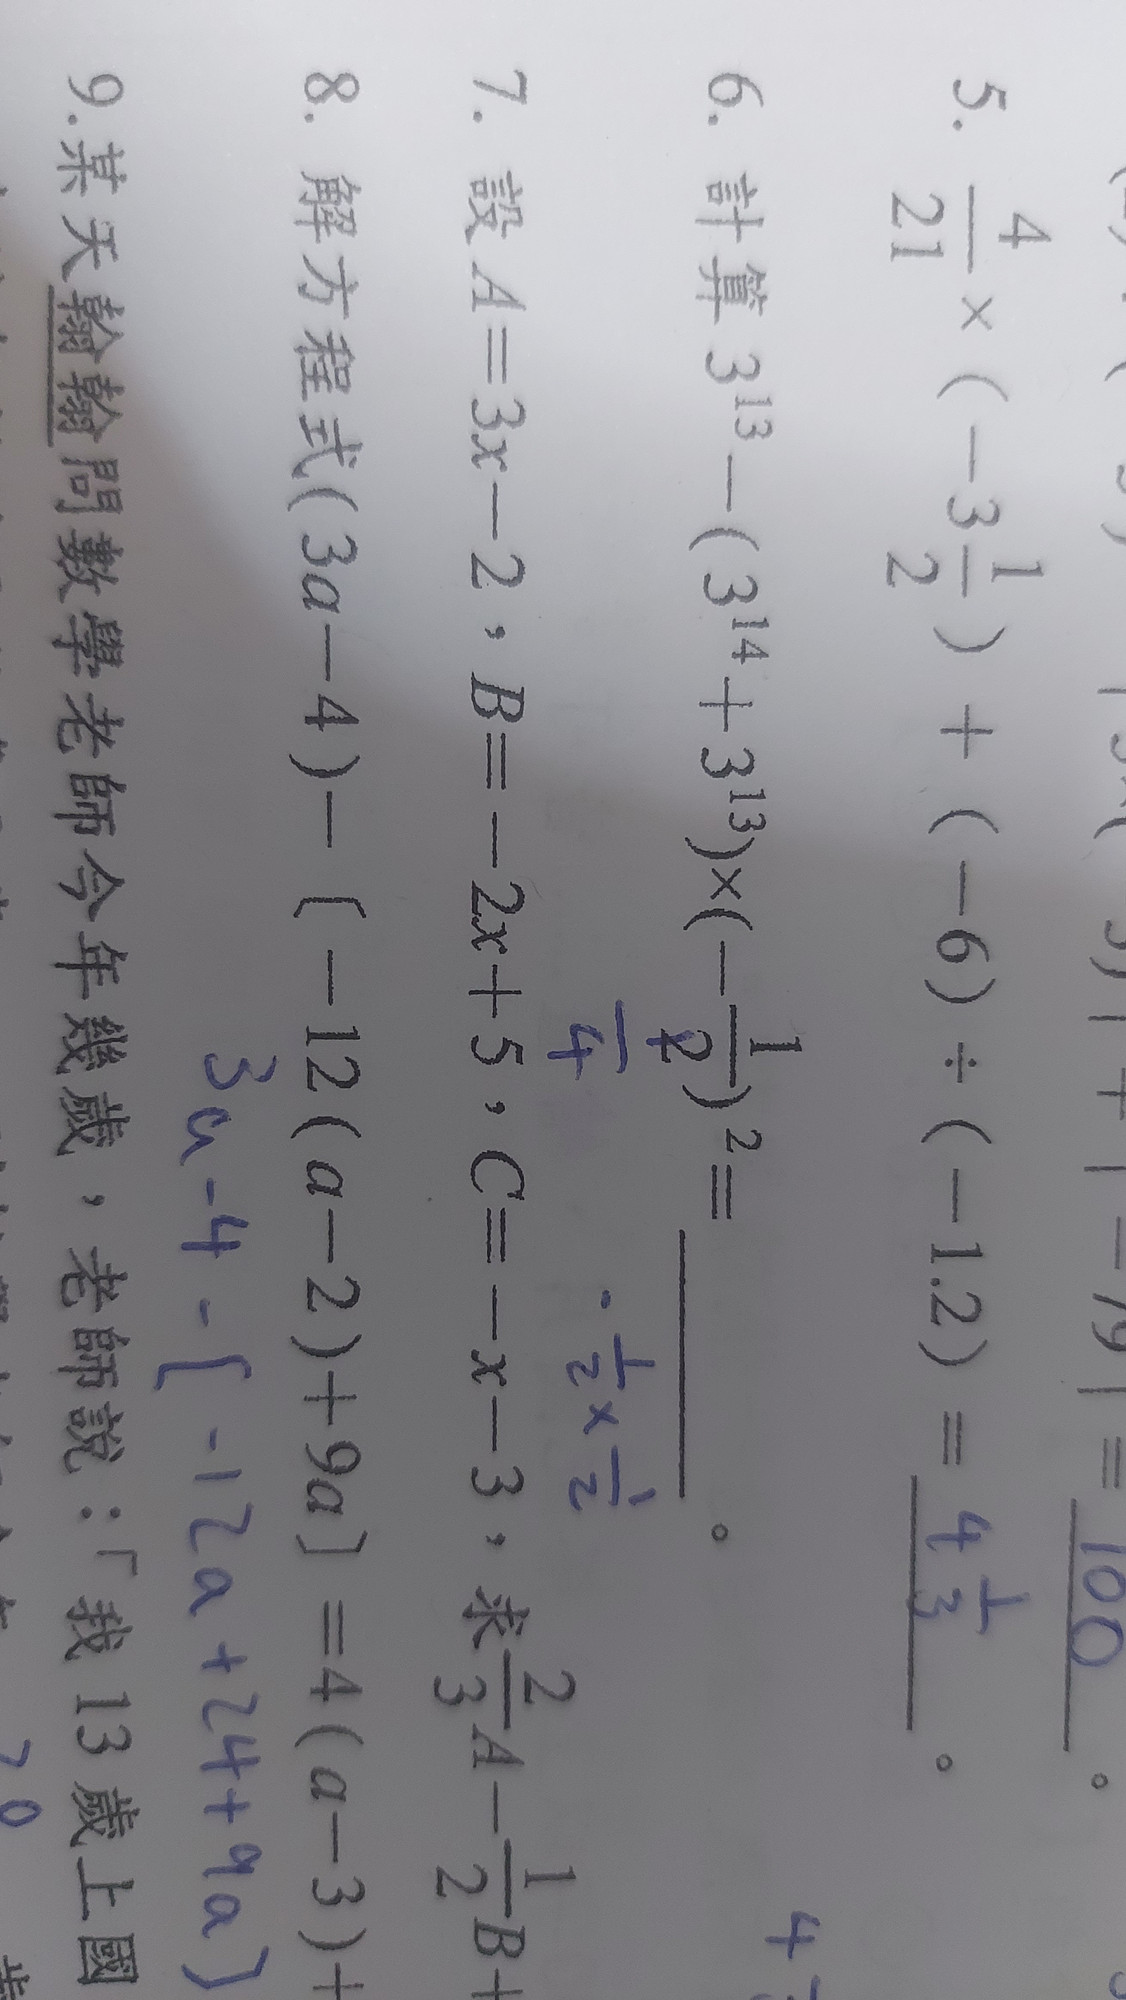 = 100 。
5. 4/21 × ( -3 1/2 ) + ( -6 ) ÷ ( -1.2 ) = 4 1/3 。
6. 計算 3¹³ - ( 3¹⁴ + 3¹³ ) × ( - 1/2 )² = 。
4
- 1/2 × 1/2
7. 設 A = 3x - 2,B = -2x + 5,C = -x - 3,求 2/3 A - 1/2 B +
8. 解方程式 ( 3a - 4 ) - [ -12 ( a - 2 ) + 9a ] = 4 ( a - 3 ) +
3a - 4 - [ -12a + 24 + 9a )
9. 某天翰翰問數學老師今年幾歲,老師說:「我 13 歲上國